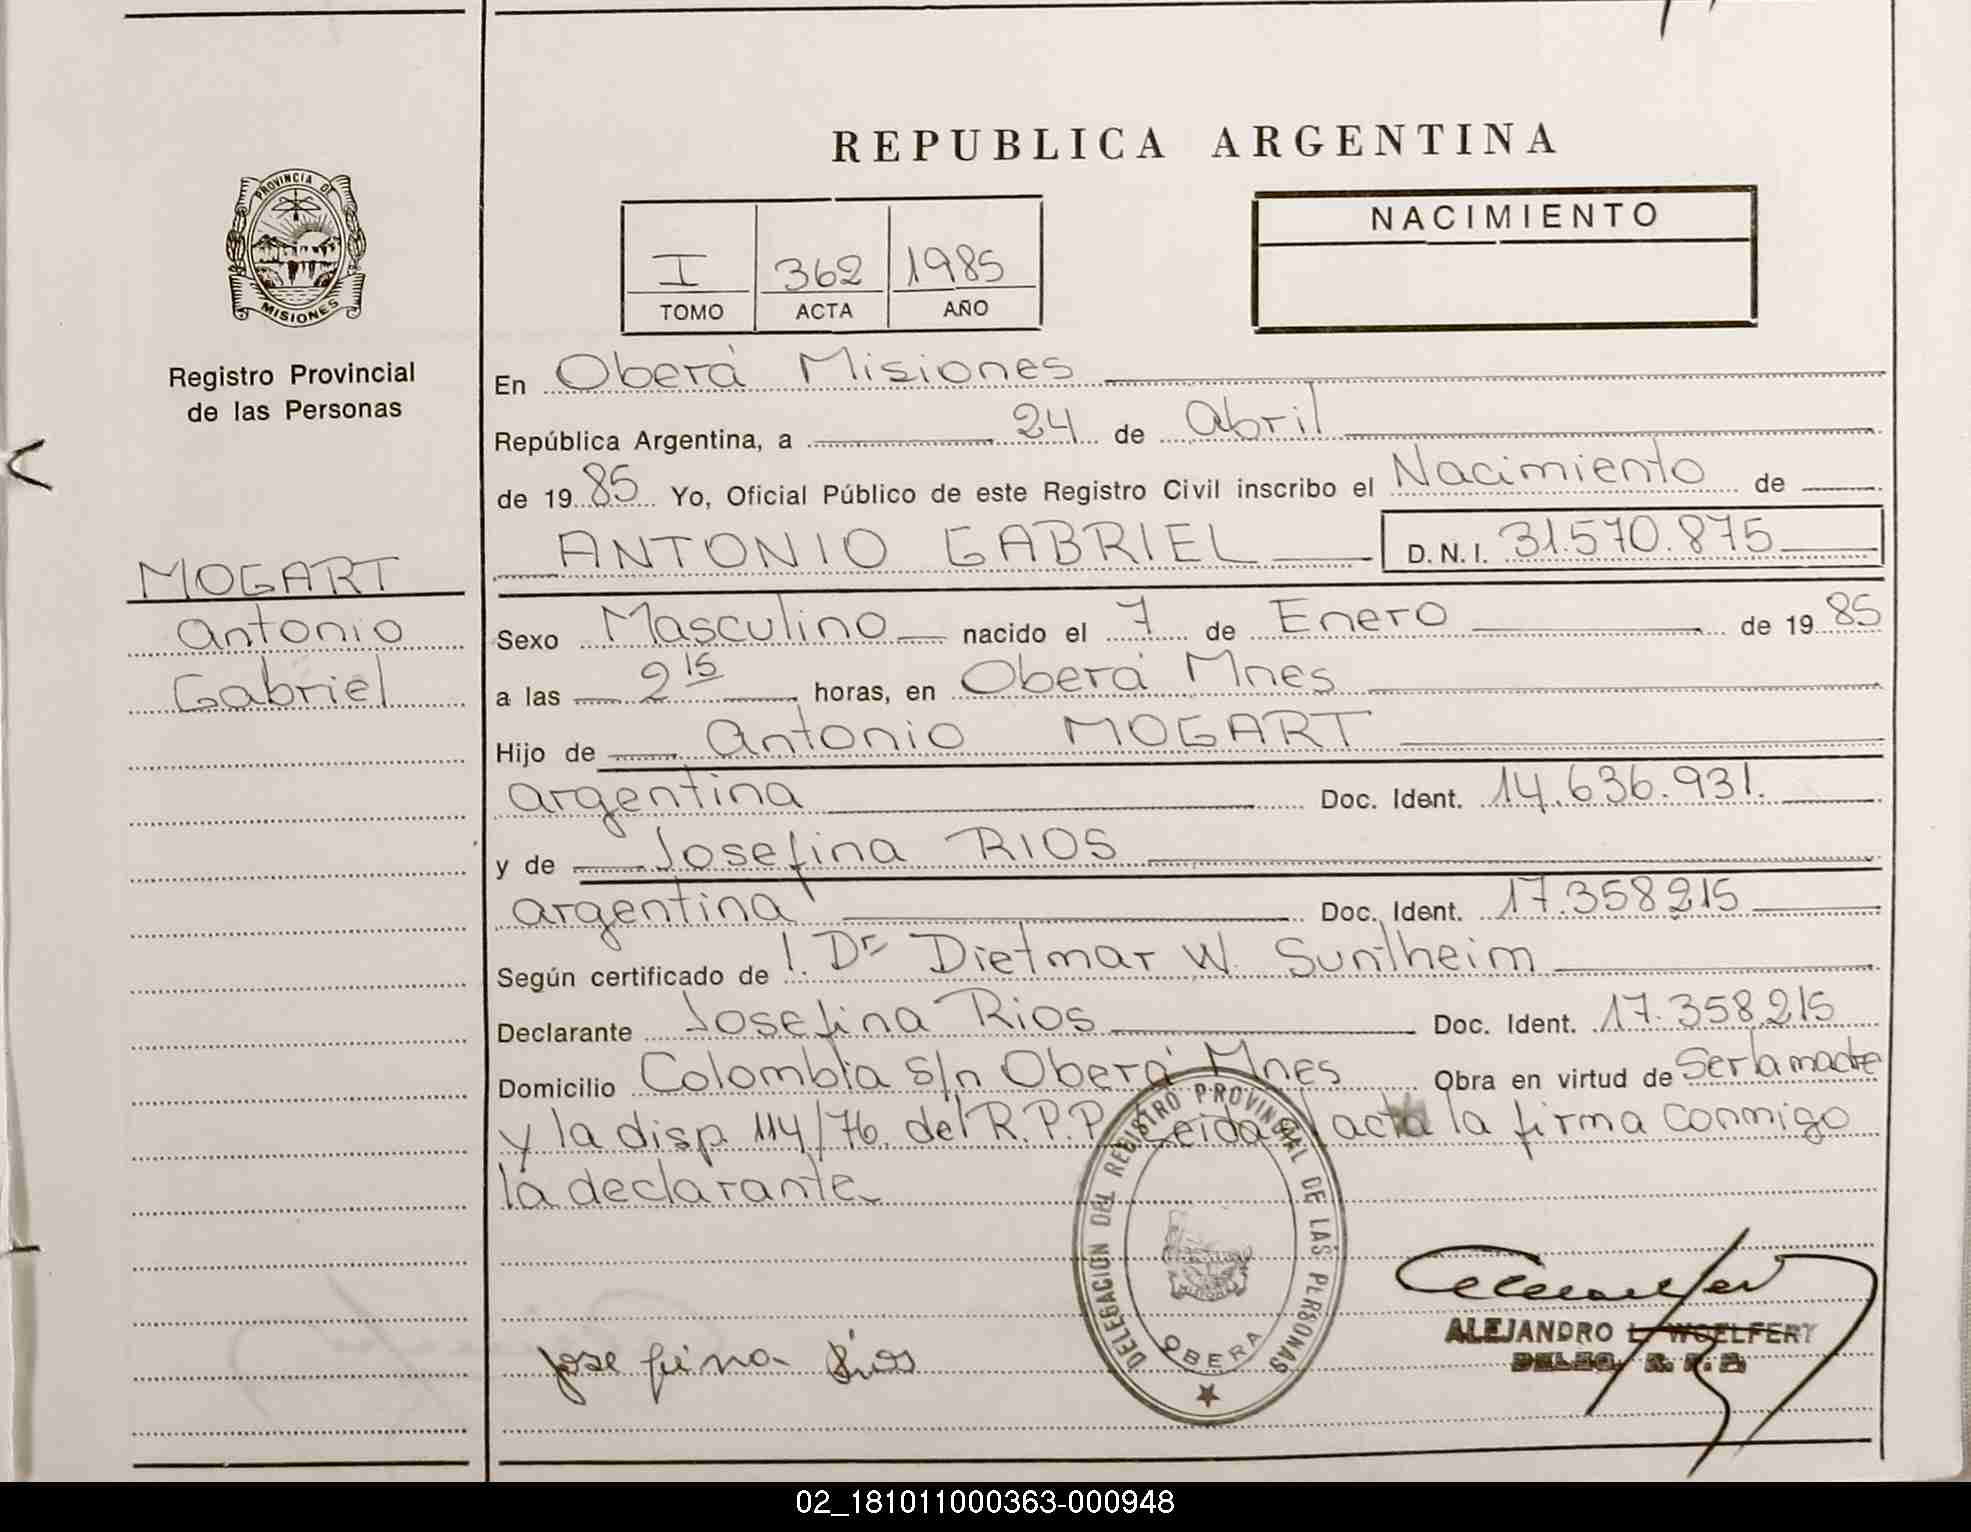 REPUBLICA ARGENTINA
PROVINCIA DE
MISIONES
Registro Provincial
de las Personas
MOGART
Antonio
Gabriel
I 362 1985
TOMO ACTA AÑO
NACIMIENTO
En Oberá Misiones
República Argentina, a 24 de Abril
de 1985 Yo, Oficial Público de este Registro Civil inscribo el Nacimiento de
ANTONIO GABRIEL D.N.I. 31.570.875
Sexo Masculino nacido el 7 de Enero de 1985
a las 2 15 horas, en Oberá Mnes
Hijo de Antonio MOGART
argentina Doc. Ident. 14.636.931.
y de Josefina RIOS
argentina Doc. Ident. 17.358215
Según certificado de l. Dr Dietmar W. Suntheim
Declarante Josefina Rios Doc. Ident. 17.358.215
Domicilio Colombia s/n Oberá Mnes Obra en virtud de Ser la madre
y la disp. 114/76. del R.P.P. Leida el acta la firma conmigo
la declarante
DELEGACION DEL REGISTRO PROVINCIAL DE LAS PERSONAS
OBERA
Josefina Rios
ALEJANDRO L. WOELFERT
DELEG. R. P. P.
02_181011000363-000948